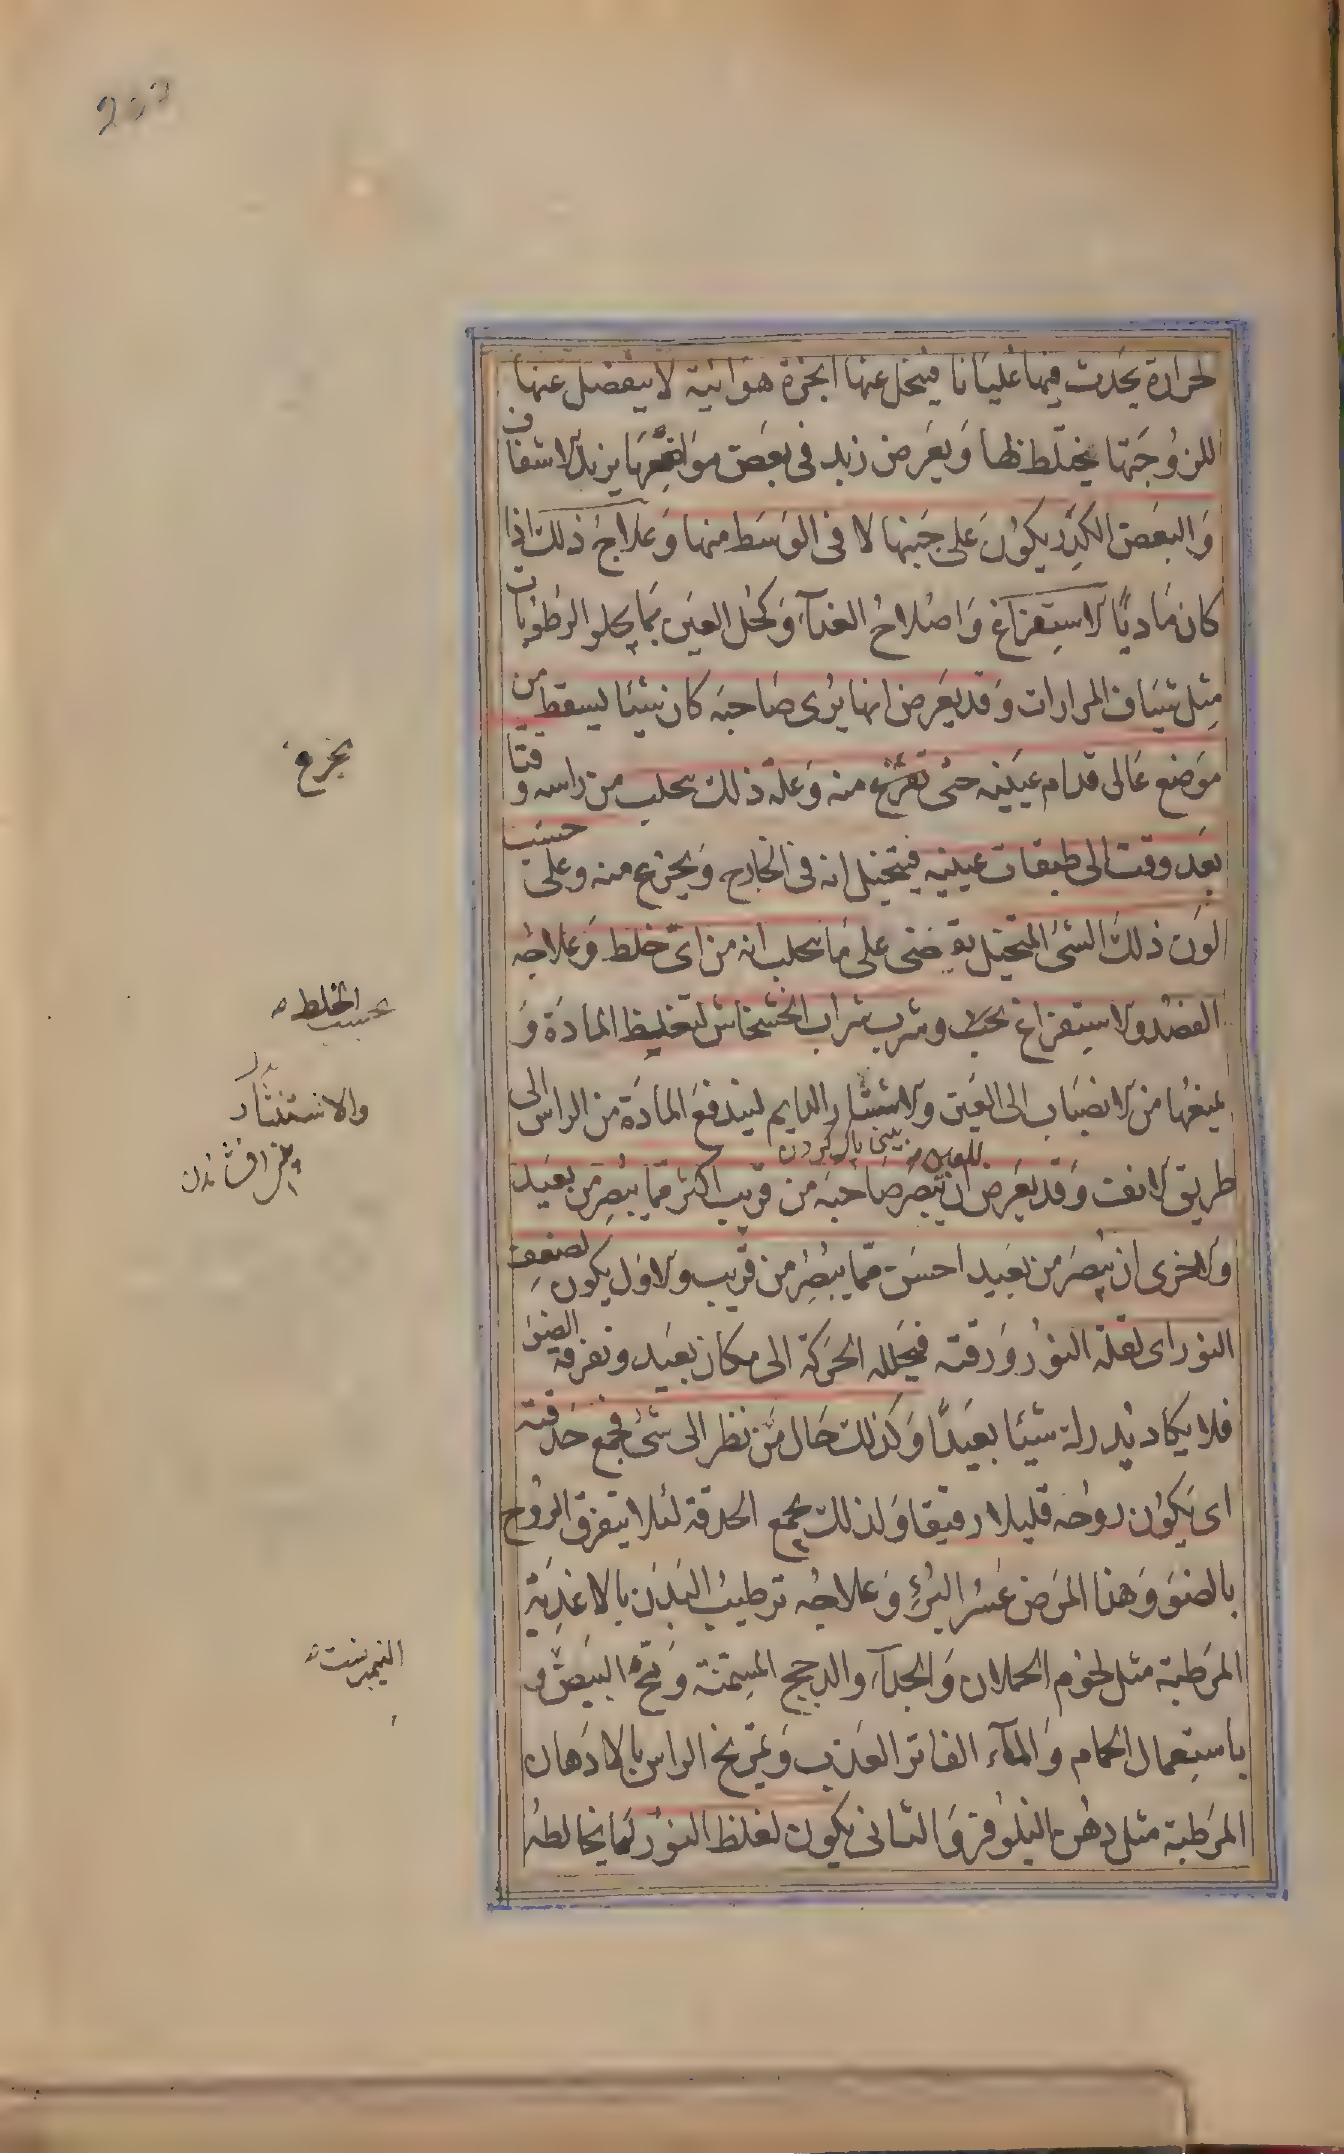 لحرارة يحدث فيها غليانا فينحل عنها ابخرة هوائية لا ينفصل عنها
للزوجتها يختلط بها و يعرض زبد في بعض مواضعها يزيل الاشفاف
و البعض الكدر يكون على جنبها لا في الوسط منها و علاج ذلك اذا
كان ماديا الاستفراغ و اصلاح الغذآء و كحل العين بما يجلو الرطوبات
مثل شياف المرارات و قد يعرض انها يرى صاحبه كان شيئا يسقط من
موضع عالى قدام عينيه حتى تفزع منه و علة ذلك تحلب من راسه وقتا
بعد وقت الى طبقات عينيه فيتخيل انه في الخارج و يجزع منه و على حسب
لون ذلك الشئ المتخيل يقضى على ما تحلب انه من اى خلط و علاجه
الفصد والاستفراغ بحسب و شرب شراب الخشخاش لتغليظ المادة و
يمنعها من الانصباب الى العين والاستنثار الدايم ليندفع المادة من الراس الى
بينى پاك كردن
طريق الانف و قد يعرض ان يبصر صاحبه من قريب اكثر مما يبصر من بعيد
والاخرى ان يبصر من بعيد احسن مما يبصر من قريب والاول يكون لضعف
النور اى لقلة النور و رقته فيحلله الحركة الى مكان بعيد و تفرقه الضوء
فلا يكاد يدرك شيئا بعيدا و كذلك حال من نظر الى شئ فجمع حدقته
اى يكون روحه قليلا رقيقا و لذلك يجمع الحدقة لئلا يتفرق الروح
بالضوء و هذا المرض عسر البرء و علاجه ترطيب البدن بالاغذية
المرطبة مثل لحوم الحملان و الجدآء والدججج المسمنة و مح البيض و
باستعمال الحمام و المآء الفاتر العذب و تمريخ الراس بالادهان
المرطبة مثل دهن النيلوفر و الثانى يكون لغلظ النور لما يخالطه
يجزع
بحسب الخلط
والاستنثار
النيمبرشت